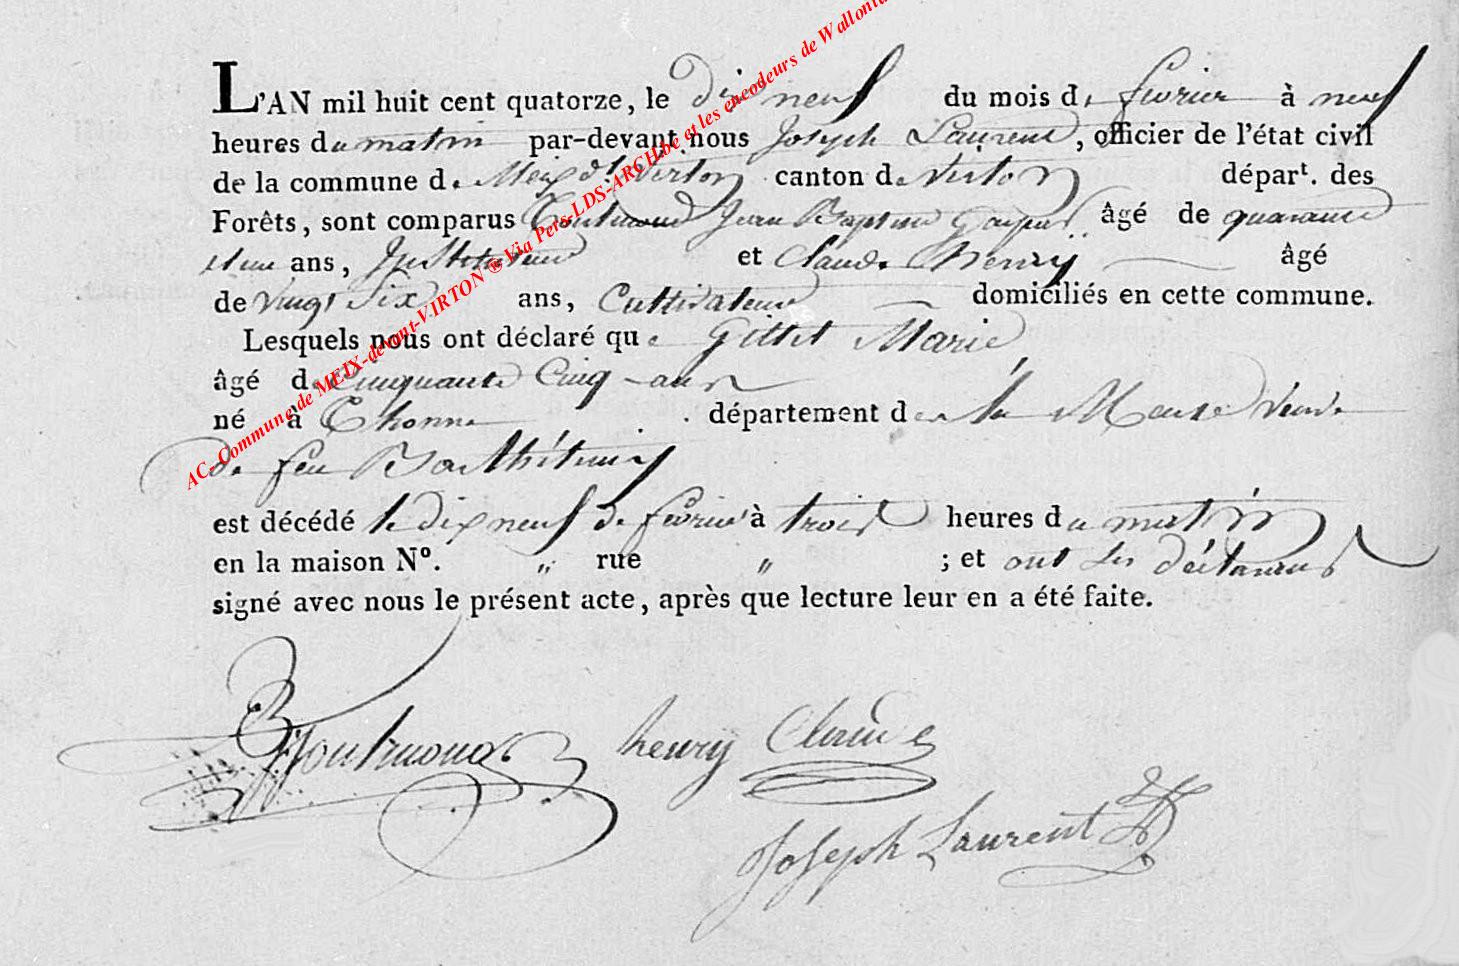 L'AN mil huit cent quatorze, le dix neuf du mois de fevrier à neuf
heures du matin par-devant nous Joseph Laurent, officier de l'état civil
de la commune de Meix dt Virton canton de virton départ. des
Forêts, sont comparus Jean Baptiste âgé de quarante
et un ans, Instituteur et Claude henry âgé
de vingt Six ans, Cultivateur domiciliés en cette commune.
Lesquels nous ont déclaré que Gillet Marie
âgé de Cinquante Cinq ans
né à Thonne département de la Meuse veuve
de feu Barthélemy
est décédé le dix neuf de fevrier à trois heures du matin
en la maison N°. „ rue „ ; et ont les déclarants
signé avec nous le présent acte, après que lecture leur en a été faite.
henry Claude
Joseph Laurent
AC- Commune de MEIX-devant-VIRTON ® Via Pers-LDS-ARCH.be et les encodeurs de Wallonie